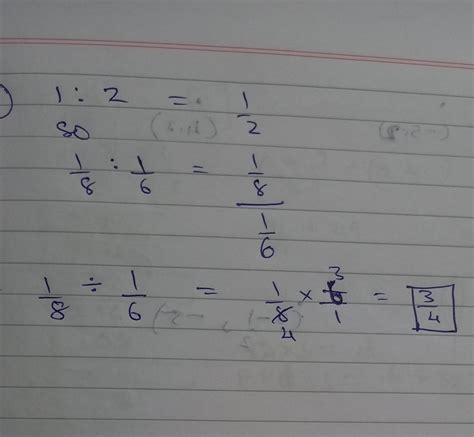 ) 1 : 2 = 1/2
so
1/8 : 1/6 = 1/8 / 1/6
1/8 ÷ 1/6 = 1/8 4 × 3 6/1 = 3/4